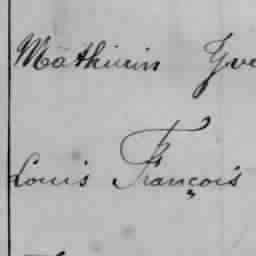 Mathurin Yve
Louis François